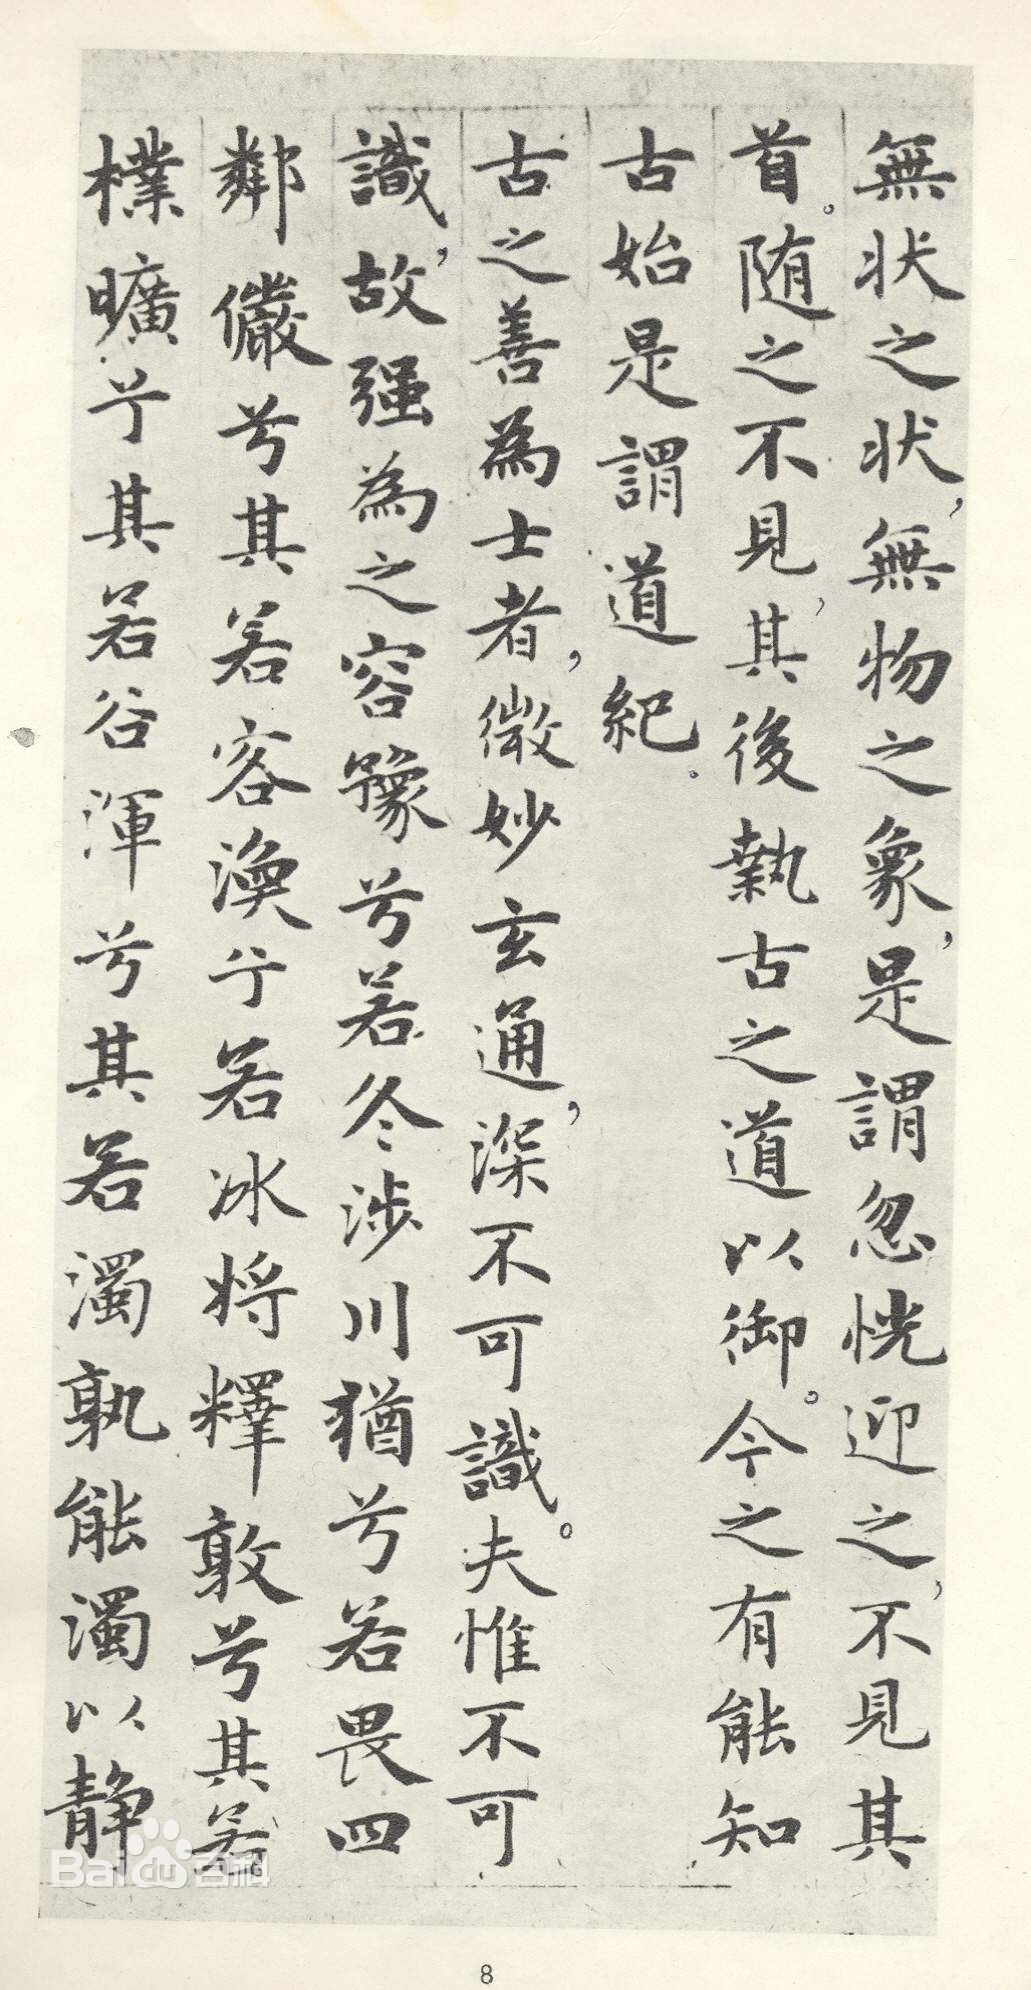 無状之状，無物之象，是謂忽恍迎之，不見其
首。随之不見，其後執古之道以御。今之有能知
古始是謂道紀。
古之善為士者，微妙玄通，深不可識。夫惟不可
識，故强為之容豫兮若冬涉川猶兮若畏四
鄰儼兮其若客渙兮若冰將釋敢兮其若
樸曠兮其若谷渾兮其若濁孰能濁以静
Bai百科
8